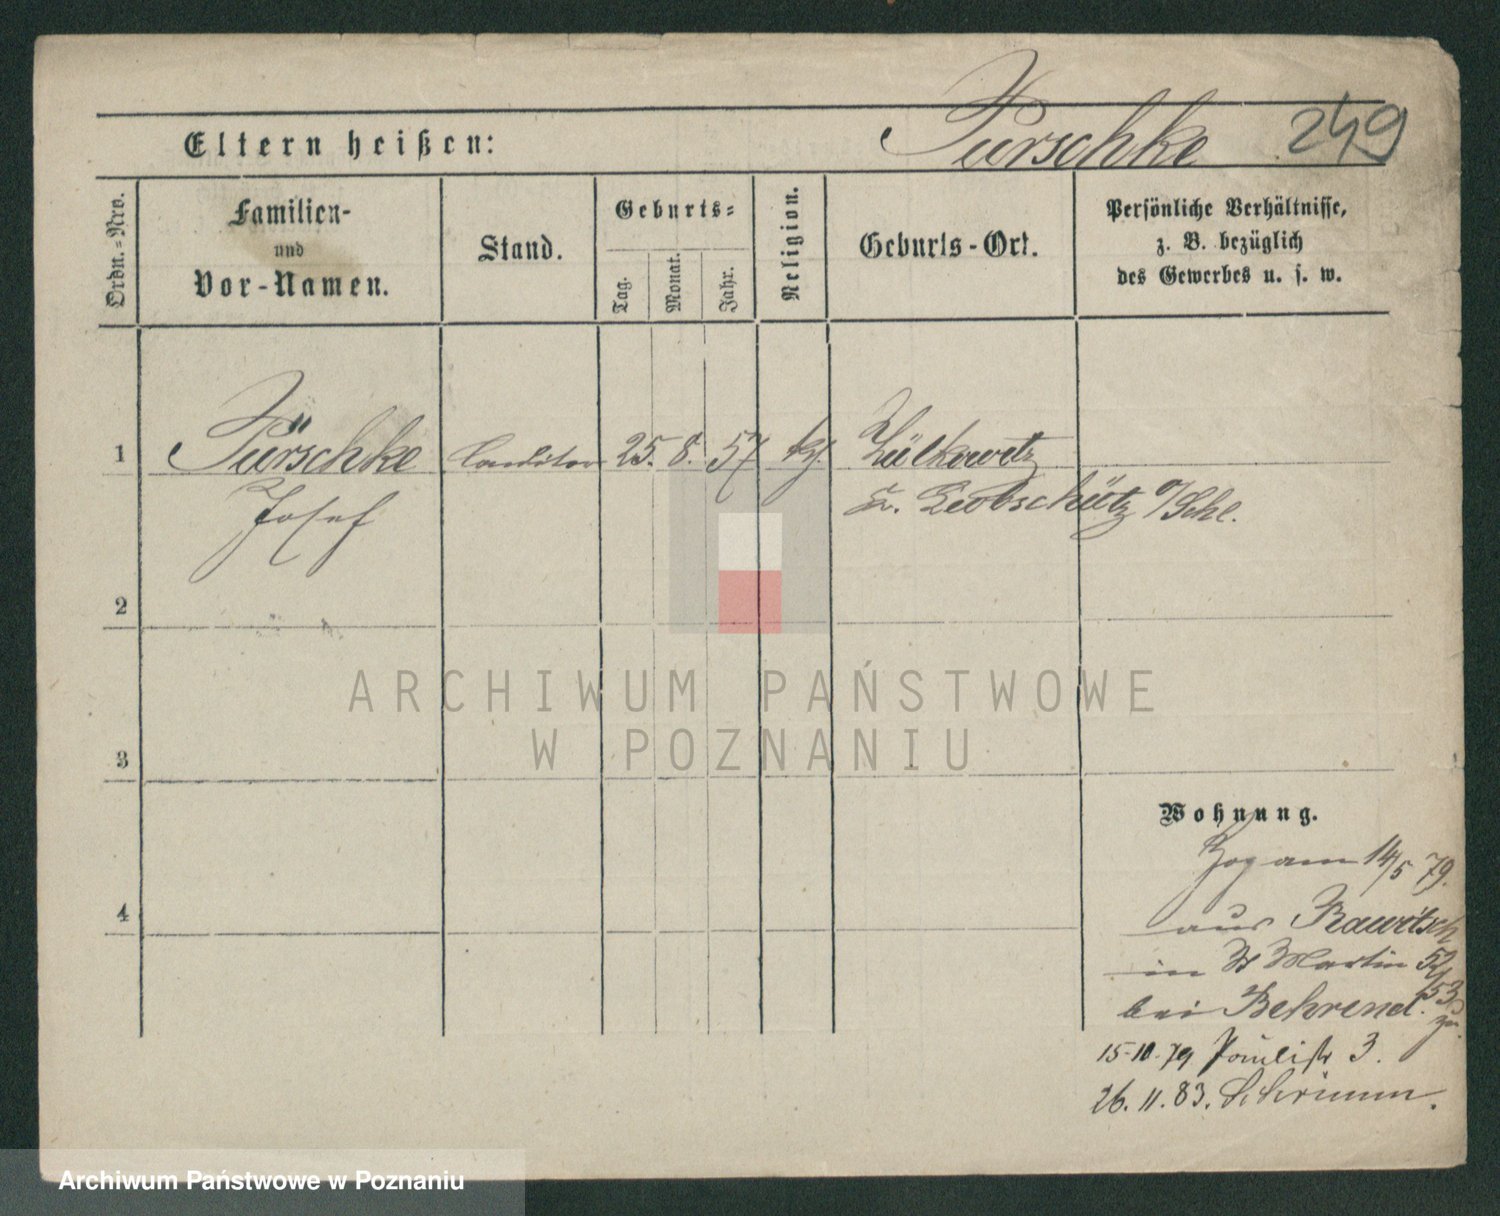 Eltern heißen: Pürschke 249
Ordn.-Nro.
Familien-
und
Vor-Namen.
Stand.
Geburts-
Tag.
Monat.
Jahr.
Religion.
Geburts-Ort.
Persönliche Verhältnisse,
z. B. bezüglich
des Gewerbes u. s. w.
1 Pürschke Conditor 25. 8. 57 kth. Zülkowitz
Josef Kr. Leobschütz O/Schl.
2
3
4
ARCHIWUM PAŃSTWOWE
W POZNANIU
Wohnung.
Zog am 14/5 79.
aus Rawitsch
in St Martin 52/53
bei Behrend. zu.
15-10-79. Paulistr 3.
26. 11. 83. Schrimm.
Archiwum Państwowe w Poznaniu